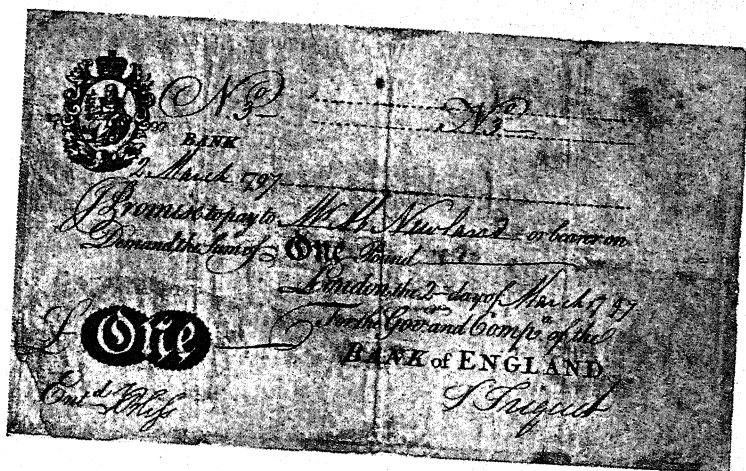 No 3 No 3
BANK
2 March 1797
Promise to pay to Mr Ab Newland or bearer on
Demand the Sum of One Pound
London, the 2 day of March 1797
For the Govr and Compa of the
£ One
BANK of ENGLAND
Entd